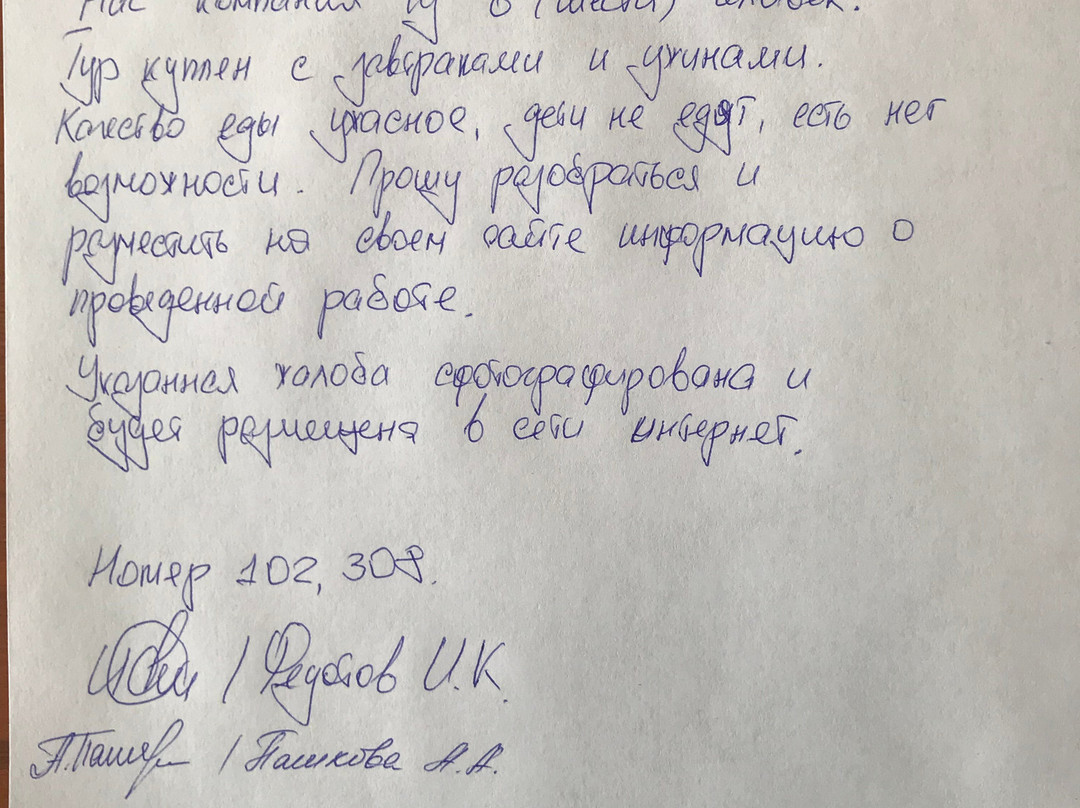 Нас компания из 6 (шести) человек.
Тур куплен с завтраками и ужинами.
Качество еды ужасное, дети не едят, есть нет
возможности. Прошу разобраться и
разместить на своем сайте информацию о
проведенной работе.
Указанная жалоба сфотографирована и
будет размещена в сети интернет.
Номер 102, 308.
/ Федотов И.К.
А.Пашк / Пашкова А.А.